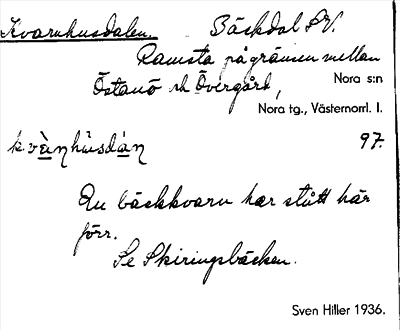 Kvarnhusdalen. Bäckdal S.V.
Ramsta på gränsen mellan
Östanö och Övergård, Nora s:n
Nora tg., Västernorrl. l.
kvὲṇhüsdáṇ 97.
En bäckkvarn har stått här
förr.
Se Skiringsbäcken.
Sven Hiller 1936.